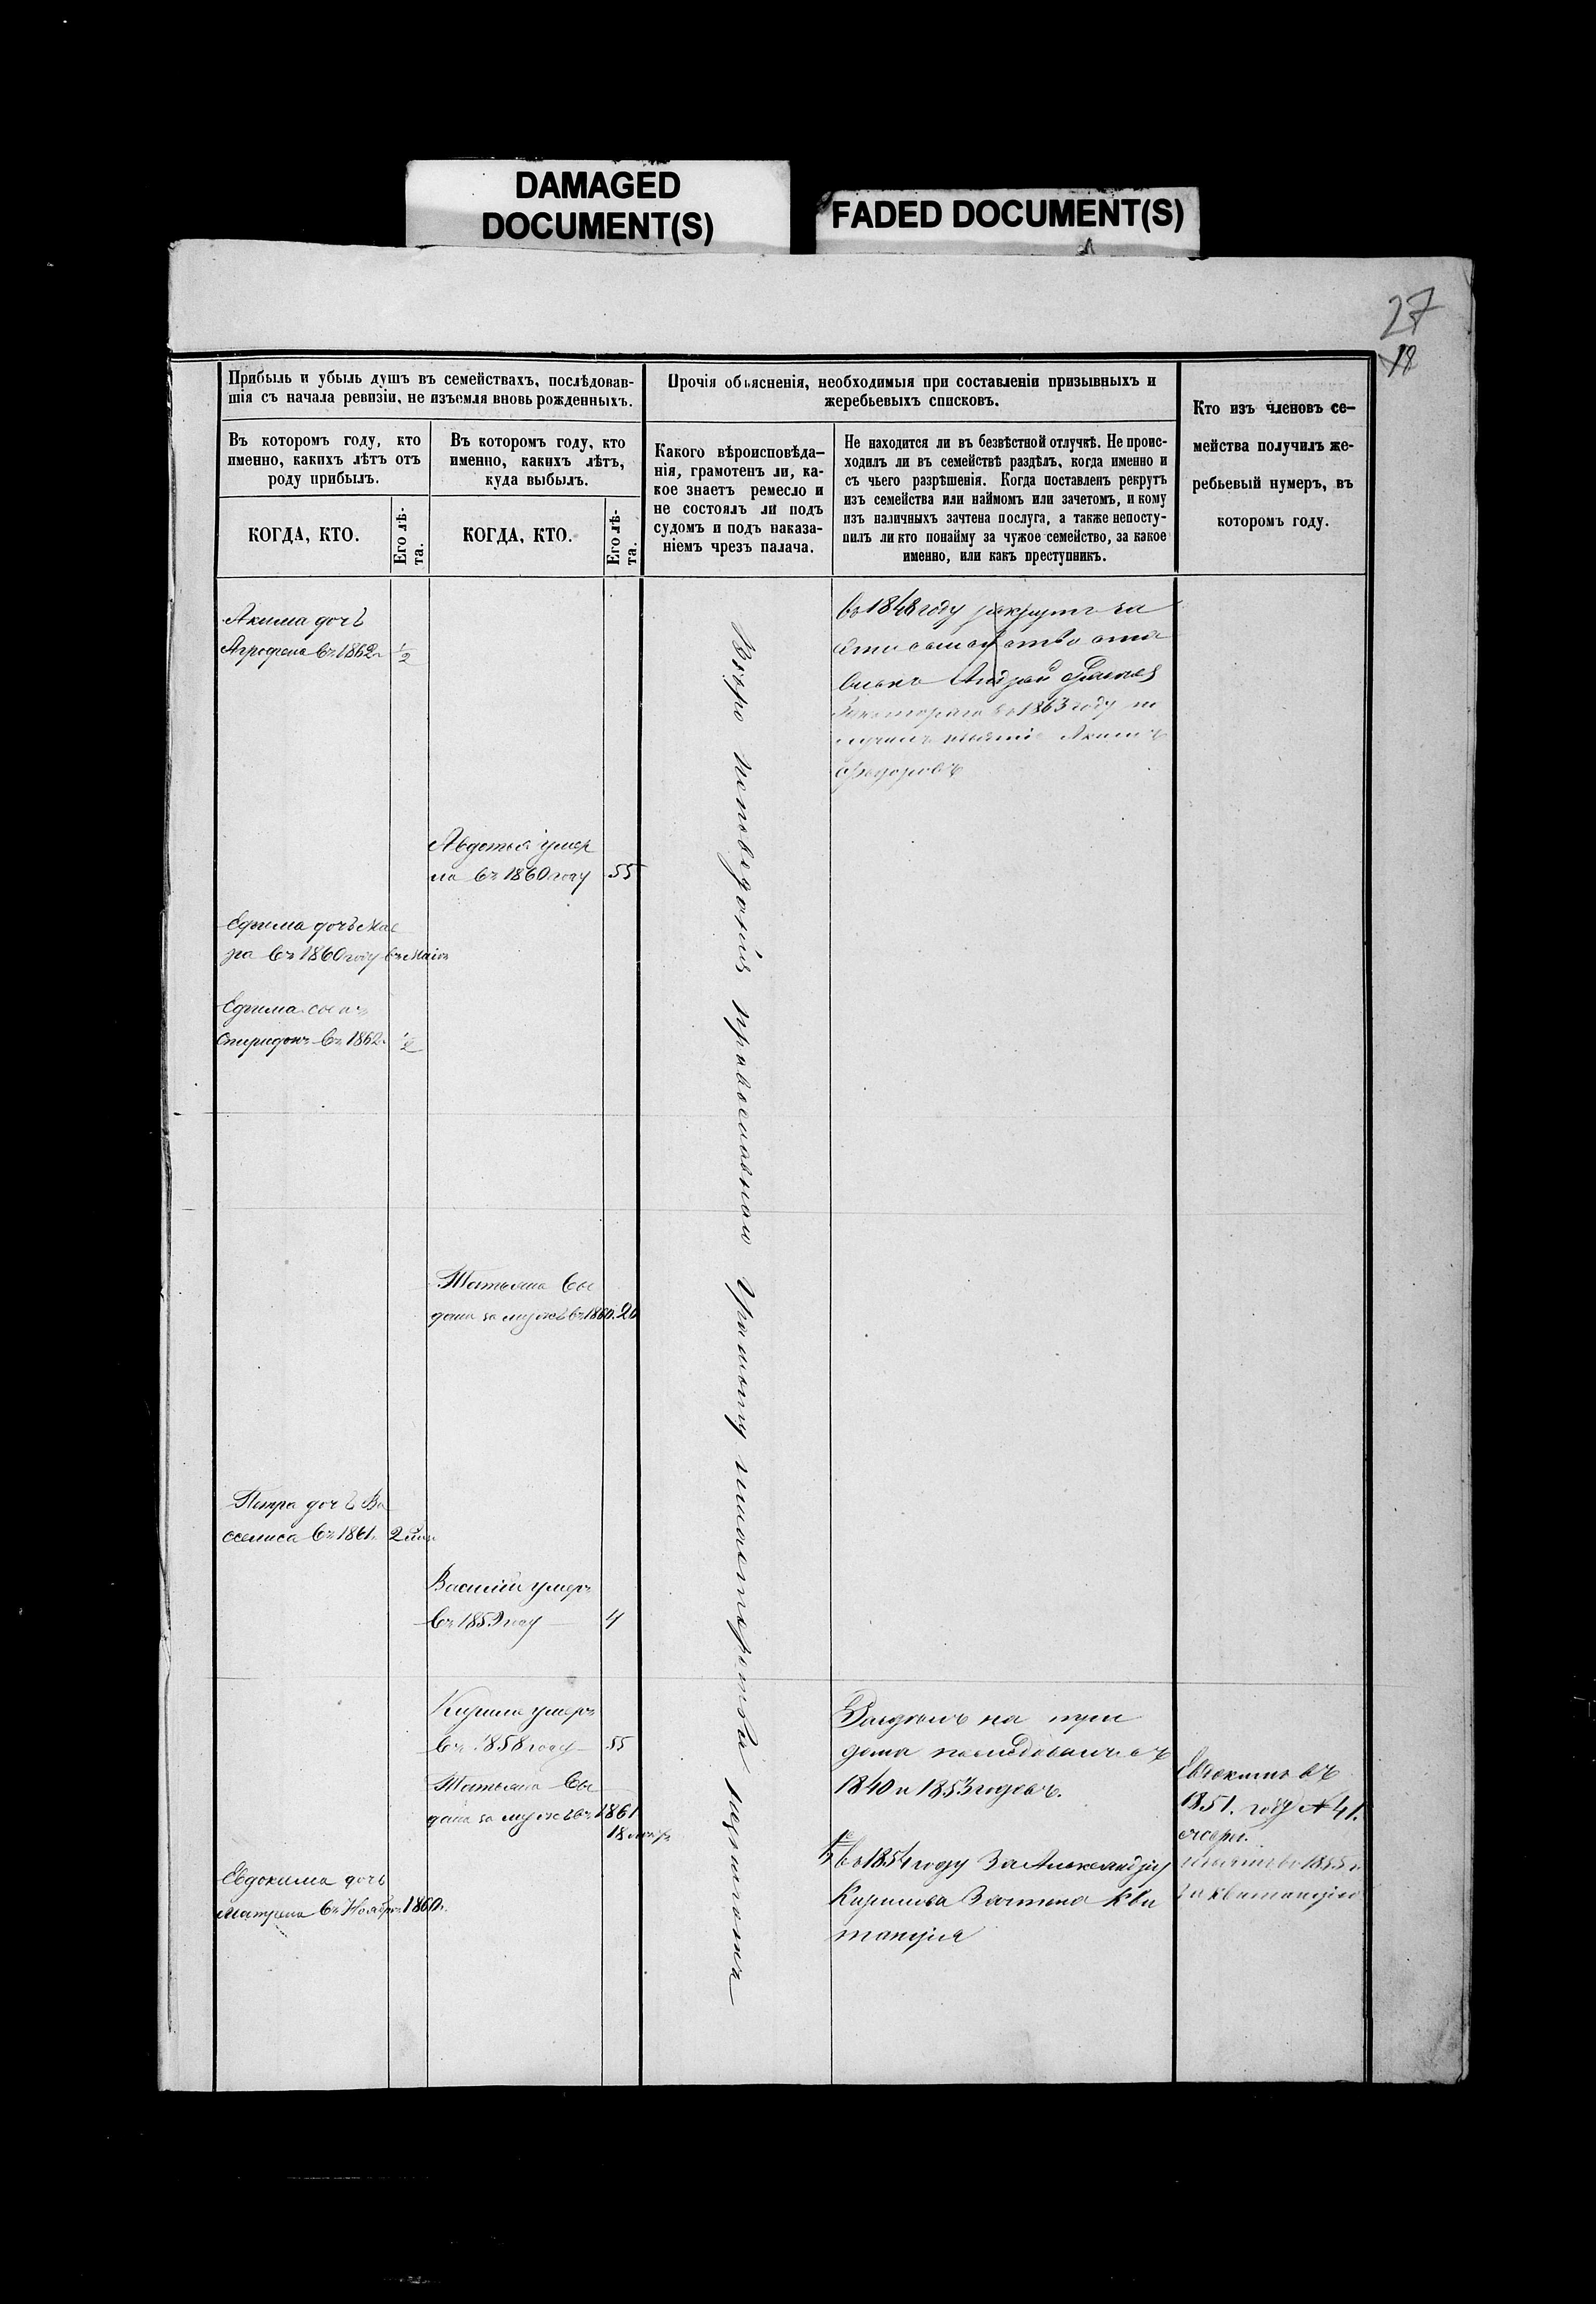 DAMAGED
DOCUMENT(S)
FADED DOCUMENT(S)
27
18
Прибыль и убыль душъ въ семействахъ, послѣдовав-
шія съ начала ревизіи, не изъемля вновь рожденныхъ.
Прочія объясненія, необходимыя при составленіи призывныхъ и
жеребьевыхъ списковъ.
Кто изъ членовъ се-
мейства получилъ же-
ребьевый нумеръ, въ
которомъ году.
Въ которомъ году, кто
именно, какихъ лѣтъ отъ
роду прибылъ.
Въ которомъ году, кто
именно, какихъ лѣтъ,
куда выбылъ.
Какого вѣроисповѣда-
нія, грамотенъ ли, ка-
кое знаетъ ремесло и
не состоялъ ли подъ
судомъ и подъ наказа-
ніемъ чрезъ палача.
Не находится ли въ безвѣстной отлучкѣ. Не проис-
ходилъ ли въ семействѣ раздѣлъ, когда именно и
съ чьего разрѣшенія. Когда поставленъ рекрутъ
изъ семейства или наймомъ или зачетомъ, и кому
изъ наличныхъ зачтена послуга, а также непосту-
пилъ ли кто понайму за чужое семейство, за какое
именно, или какъ преступникъ.
КОГДА, КТО.
Его лѣ-
та.
КОГДА, КТО.
Его лѣ-
та.
Акима дочь
Агрофена въ 1862 г ½
въ 1848 году рекрутъ за
Андрей
въ 1863 году по
Акимъ
Федоровъ
Вѣро исповеданія православнаго Грамоту
Авдотья умер
ла въ 1860 году 55
Ефима дочь Мав
ра въ 1860 году въ маіѣ
Ефима сынъ
Спиридонъ въ 1862 г ½
Татьяна вы
дана за мужъ въ 1860. 20
Петра дочь Ва
силиса въ 1861. 2
Василій умеръ
въ 1859 году 4
Кирила умеръ
въ 1858 году 55
Татьяна вы
дана за мужъ въ 1861
18
Евдокима дочь
Матрена въ Ноябрѣ 1860 г.
на три
дома последовалъ въ
1840 и 1853 годовъ.
въ 1854 году за Александру
Кирилова Зачтена кви
танція
Евдокимъ въ
1851. году № 41.
въ 1855 г
за квитанцію